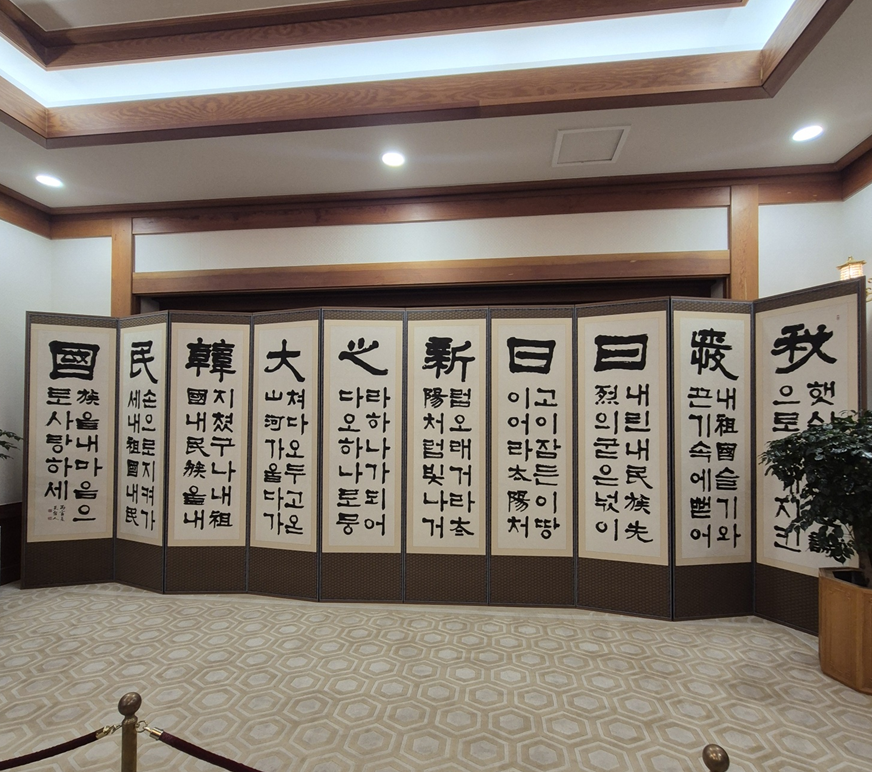 秋
햇살
으로 지킨
내祖國슬기와
끈기속에뻗어
日
내린내民族先
烈의굳은넋이
日
고이잠든이땅
이어라太陽처
新
럼오래거라太
陽처럼빛나거
之
라하나가되어
다오하나로뭉
大
쳐다오두고온
山河가을다가
韓
지쳤구나내祖
國내民族을내
民
손으로지켜가
세내祖國내民
國
族을내마음으
로사랑하세